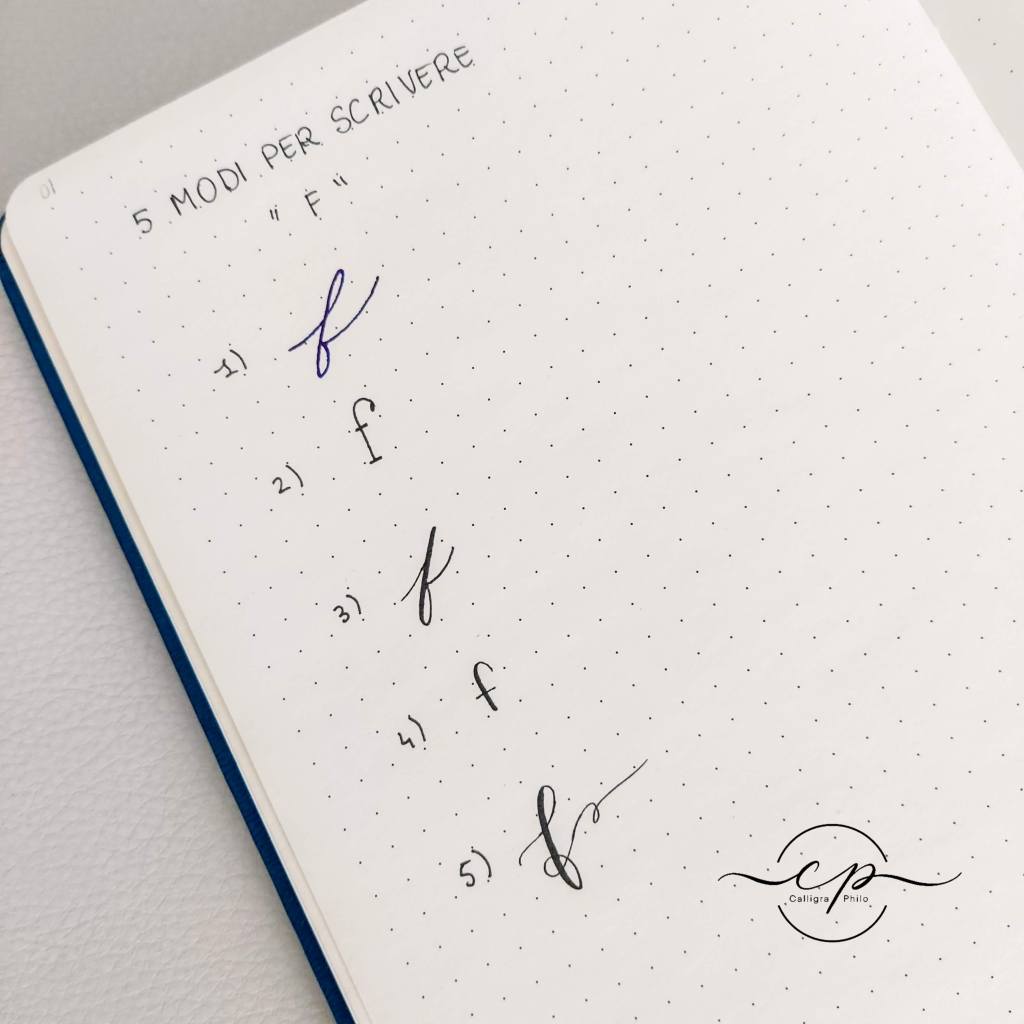 01
5 MODI PER SCRIVERE
" F "
1) f
2) f
3) f
4) f
5) f
cp
Calligra Philo